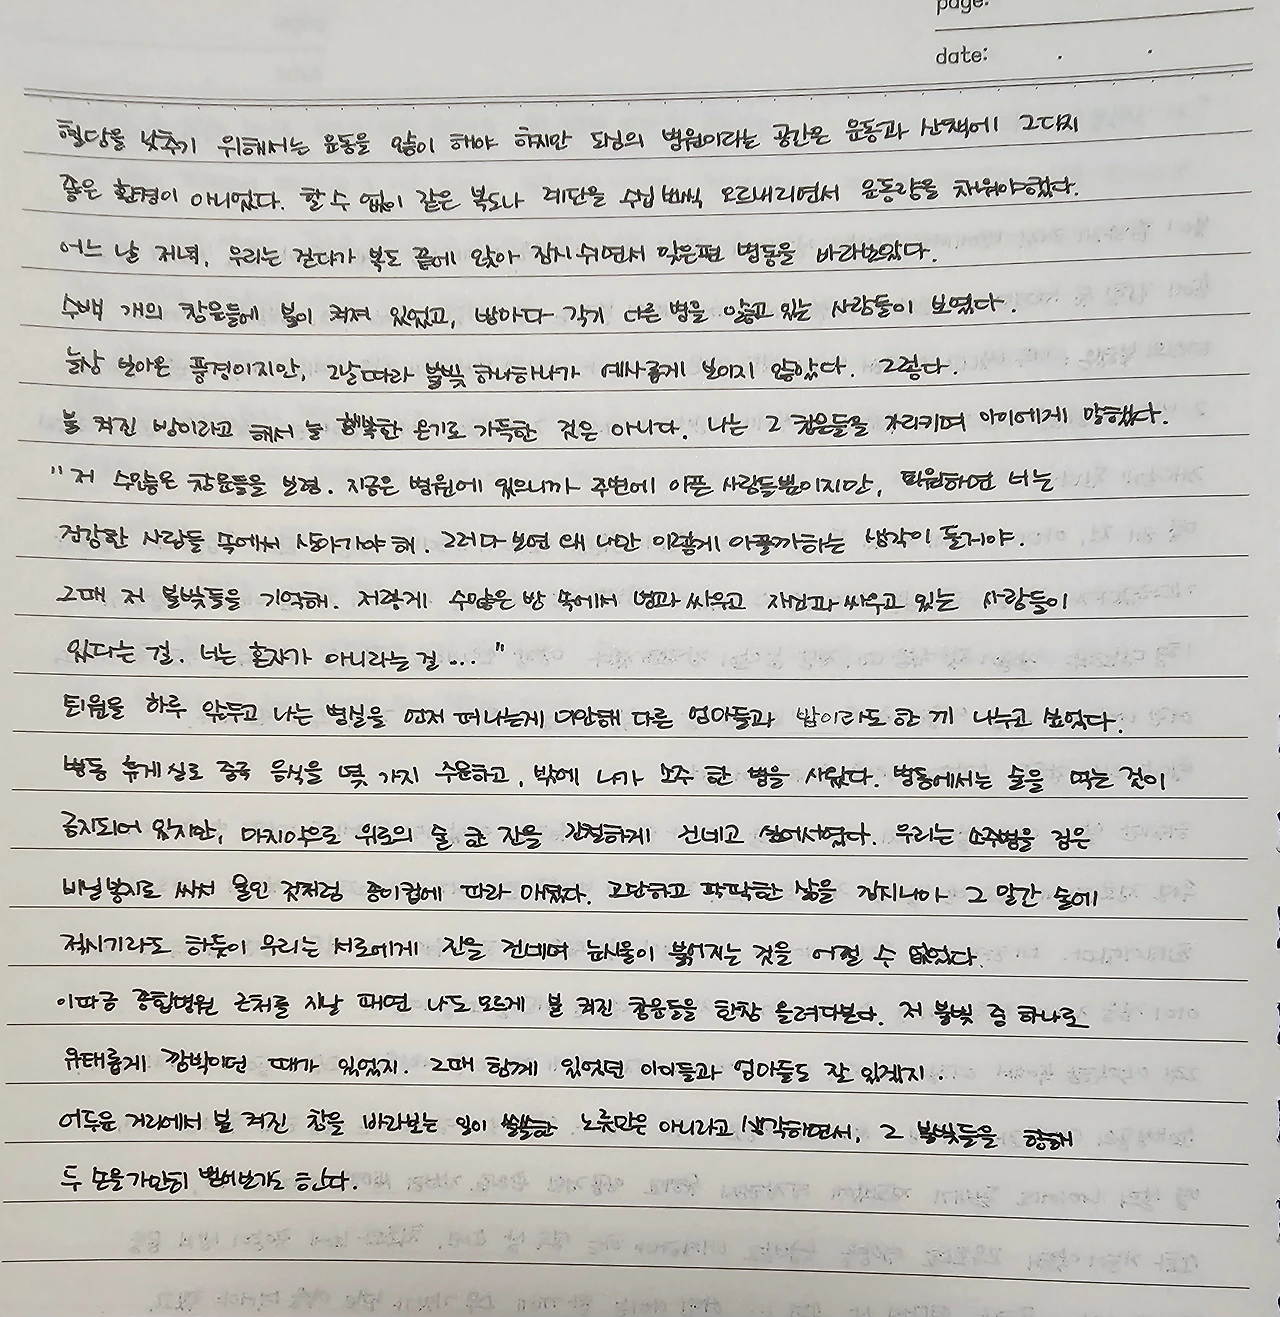 page:
date:
혈당을 낮추기 위해서는 운동을 많이 해야 하지만 도심의 병원이라는 공간은 운동과 산책에 그다지
좋은 환경이 아니었다. 할 수 없이 같은 복도나 계단을 수십 번씩 오르내리면서 운동량을 채워야했다.
어느 날 저녁, 우리는 걷다가 복도 끝에 앉아 잠시 쉬면서 맞은편 병동을 바라보았다.
수백 개의 창문들에 불이 켜져 있었고, 방마다 각기 다른 병을 앓고 있는 사람들이 보였다.
늘상 보아온 풍경이지만, 그날따라 불빛 하나하나가 예사롭게 보이지 않았다. 그렇다.
불 켜진 방이라고 해서 늘 행복한 온기로 가득한 것은 아니다. 나는 그 창문들을 가리키며 아이에게 말했다.
"저 수많은 창문들을 보렴. 지금은 병원에 있으니까 주변에 아픈 사람들뿐이지만, 퇴원하면 너는
건강한 사람들 속에서 살아가야 해. 그러다 보면 왜 나만 이렇게 아플까하는 생각이 들거야.
그때 저 불빛들을 기억해. 저렇게 수많은 방 속에서 병과 싸우고 자신과 싸우고 있는 사람들이
있다는 걸. 너는 혼자가 아니라는 걸..."
퇴원을 하루 앞두고 나는 병실을 먼저 떠나는게 미안해 다른 엄마들과 밥이라도 한 끼 나누고 싶었다.
병동 휴게실로 중국 음식을 몇 가지 주문하고, 밖에 나가 소주 한 병을 사왔다. 병동에서는 술을 먹는 것이
금지되어 있지만, 마지막으로 위로의 술 한 잔을 간절하게 건네고 싶어서였다. 우리는 소주병을 검은
비닐봉지로 싸서 물인 것처럼 종이컵에 따라 마셨다. 고단하고 팍팍한 삶을 잠시나마 그 말간 술에
적시기라도 하듯이 우리는 서로에게 잔을 건네며 눈시울이 붉어지는 것을 어쩔 수 없었다.
이따금 종합병원 근처를 지날 때면 나도 모르게 불 켜진 창문들을 한참 올려다본다. 저 불빛 중 하나로
위태롭게 깜박이던 때가 있었지. 그때 함께 있었던 아이들과 엄마들도 잘 있겠지.
어두운 거리에서 불 켜진 창을 바라보는 일이 쓸쓸한 노릇만은 아니라고 생각하면서, 그 불빛들을 향해
두 손을 가만히 뻗어보기도 한다.